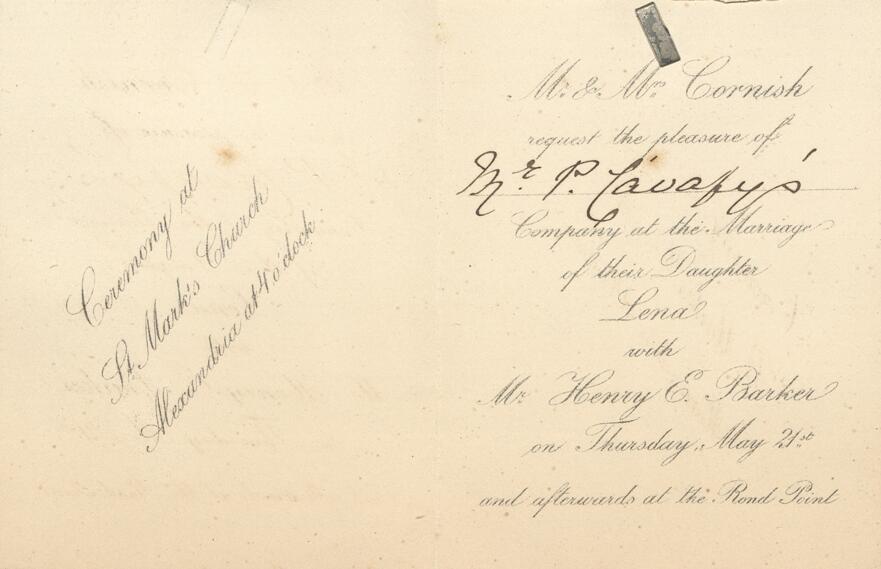 Ceremony at
St Mark's Church
Alexandria at 4 o'clock
Mr & Mrs Cornish
request the pleasure of
Mr P. Cavafy's
Company at the Marriage
of their Daughter
Lena
with
Mr Henry E. Barker
on Thursday, May 21st
and afterwards at the Rond Point